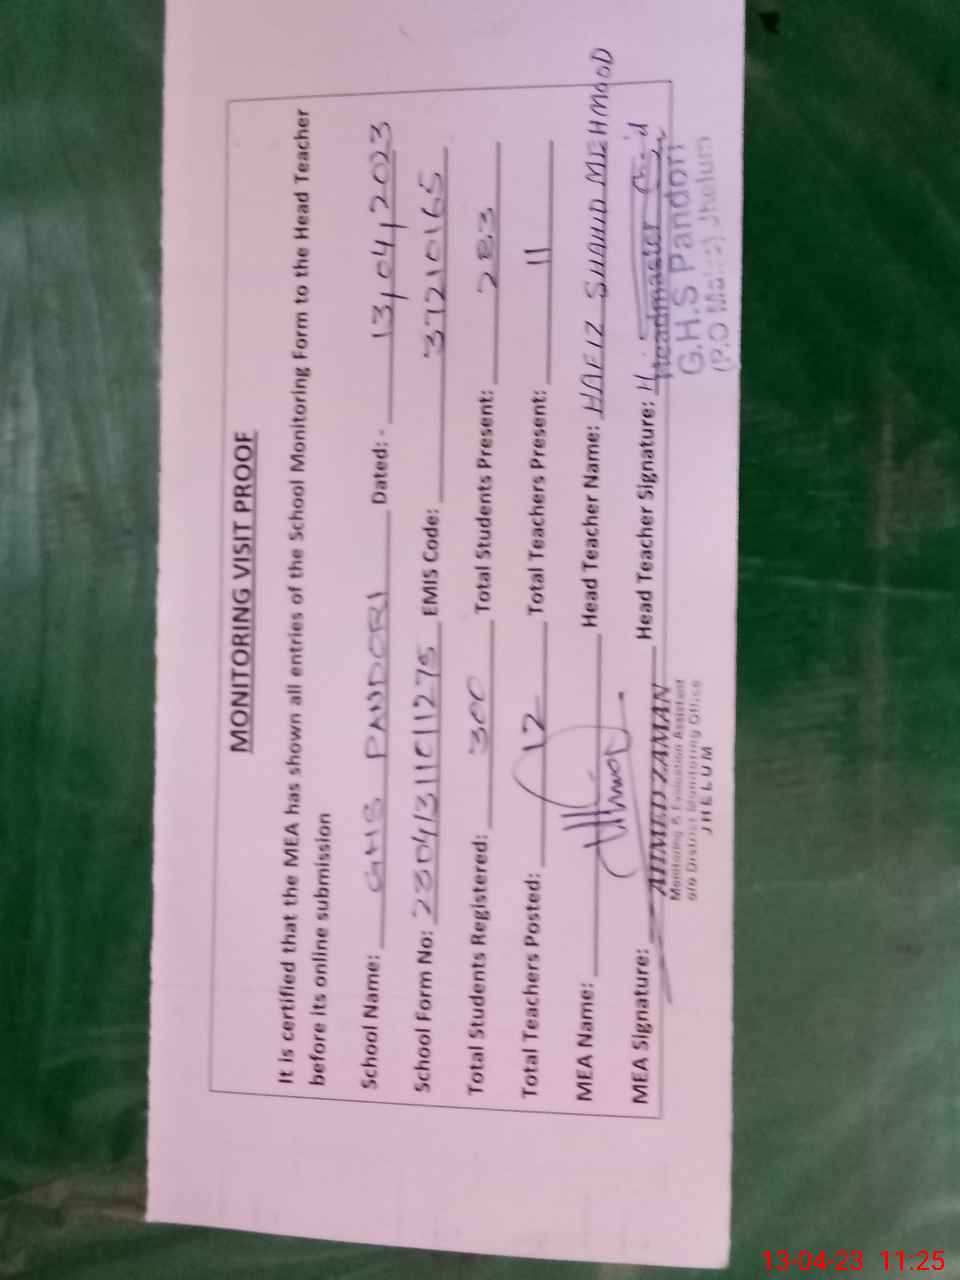 MONITORING VISIT PROOF
It is certified that the MEA has shown all entries of the School Monitoring Form to the Head Teacher
before its online submission
School Name: GHS PANDORI Dated: - 13/04/2023
School Form No: EMIS Code: 37210165
Total Students Registered: 300 Total Students Present: 283
Total Teachers Posted: 12 Total Teachers Present: 11
MEA Name: Head Teacher Name: HAFIZ SHAHID MEHMOOD
MEA Signature: Head Teacher Signature:
AHMED ZAMAN
Monitoring & Evaluation Assistant
o/o District Monitoring Office
JHELUM
Headmaster
G.H.S Pandori
(P.O Jhelum
13-04-23 11:25